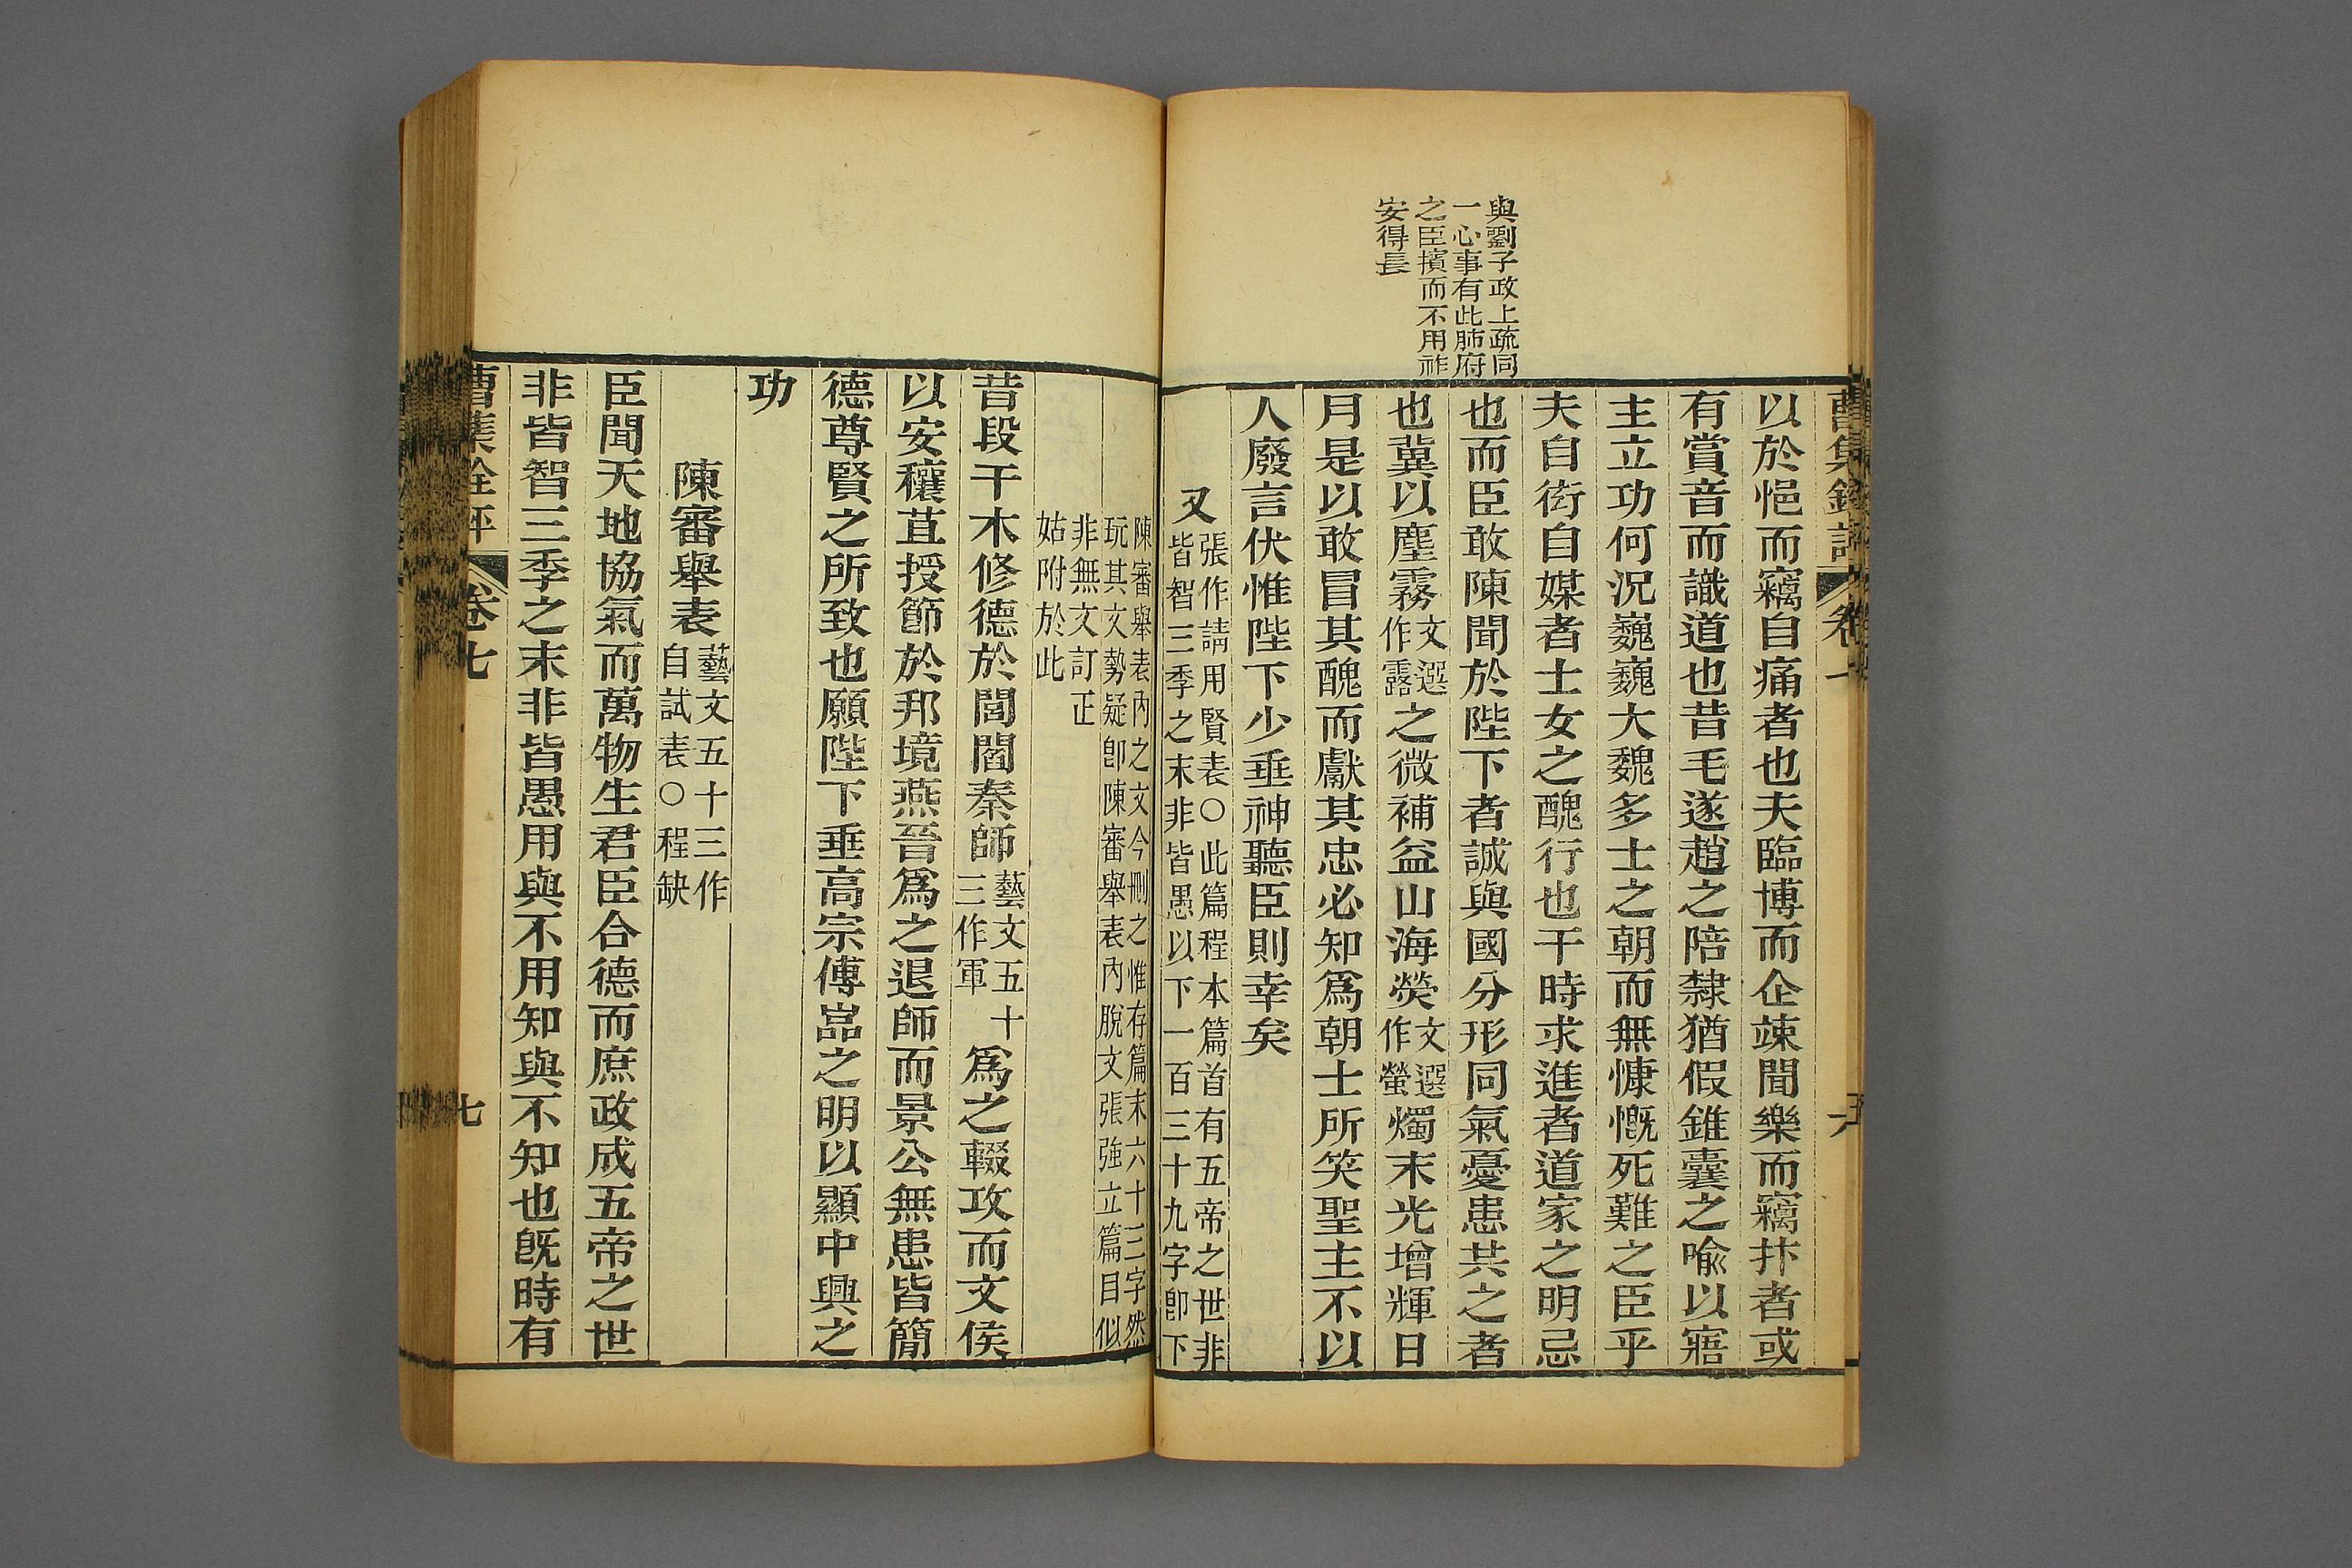 與劉子政上疏同
一心事有此肺府
之臣擯而不用祚
安得長
以於悒而竊自痛者也夫臨博而企竦聞樂而竊抃者或
有賞音而識道也昔毛遂趙之陪隸猶假錐囊之喻以寤
主立功何況巍巍大魏多士之朝而無慷慨死難之臣乎
夫自衒自媒者士女之醜行也干時求進者道家之明忌
也而臣敢陳聞於陛下者誠與國分形同氣憂患共之者
也冀以塵霧文選作露之微補益山海熒文選作螢燭末光增輝日
月是以敢冒其醜而獻其忠必知爲朝士所笑聖主不以
人廢言伏惟陛下少垂神聽臣則幸矣
又
張作請用賢表○此篇程本篇首有五帝之世非
皆智三季之末非皆愚以下一百三十九字卽下
陳審舉表內之文今刪之惟存篇末六十三字然
玩其文勢疑卽陳審舉表內脫文張強立篇目似
非無文訂正
姑附於此
昔段干木修德於閭閻秦師藝文五十三作軍爲之輟攻而文侯
以安穰苴授節於邦境燕晉爲之退師而景公無患皆簡
德尊賢之所致也願陛下垂高宗傅巖之明以顯中興之
功
陳審舉表藝文五十三作自試表○程缺
臣聞天地協氣而萬物生君臣合德而庶政成五帝之世
非皆智三季之末非皆愚用與不用知與不知也旣時有
曹集銓評
卷七
七